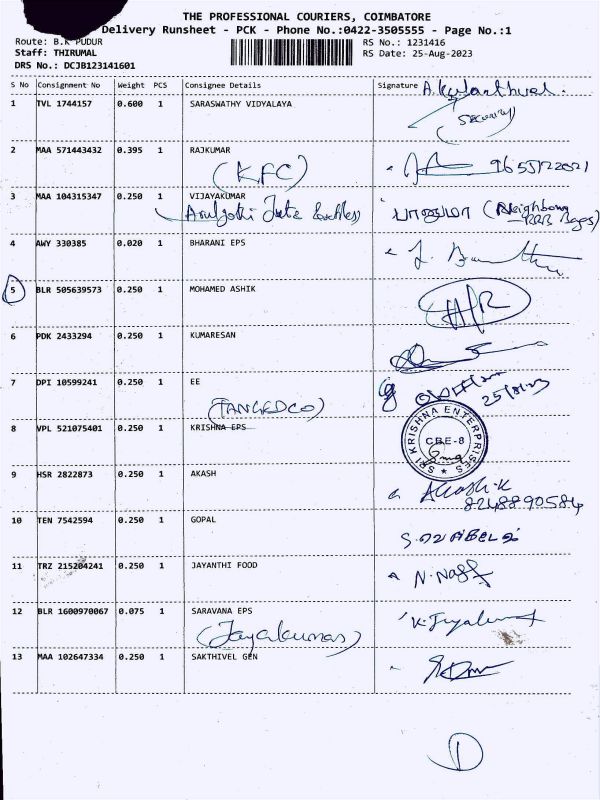 THE PROFESSIONAL COURIERS, COIMBATORE
Delivery Runsheet - PCK - Phone No.:0422-3505555 - Page No.:1
Route: B.K PUDUR RS No.: 1231416
Staff: THIRUMAL RS Date: 25-Aug-2023
DRS No.: DCJB123141601
S No Consignment No Weight PCS Consignee Details Signature
1 TVL 1744157 0.600 1 SARASWATHY VIDYALAYA
Security
2 MAA 571443432 0.395 1 RAJKUMAR
(KFC)
3 MAA 104315347 0.250 1 VIJAYAKUMAR
Aruljothi Jute (Neighbour
RRB Bags)
4 AWY 330385 0.020 1 BHARANI EPS
5 BLR 505639573 0.250 1 MOHAMED ASHIK
6 PDK 2433294 0.250 1 KUMARESAN
7 DPI 10599241 0.250 1 EE
(TANGEDCO) 25/8/23
8 VPL 521075401 0.250 1 KRISHNA EPS
SRI KRISHNA ENTERPRISES
CBE-8
9 HSR 2822873 0.250 1 AKASH Akash.K
8248890584
10 TEN 7542594 0.250 1 GOPAL
11 TRZ 215204241 0.250 1 JAYANTHI FOOD
12 BLR 1600970067 0.075 1 SARAVANA EPS
(Jayakumar)
13 MAA 102647334 0.250 1 SAKTHIVEL GEN
D